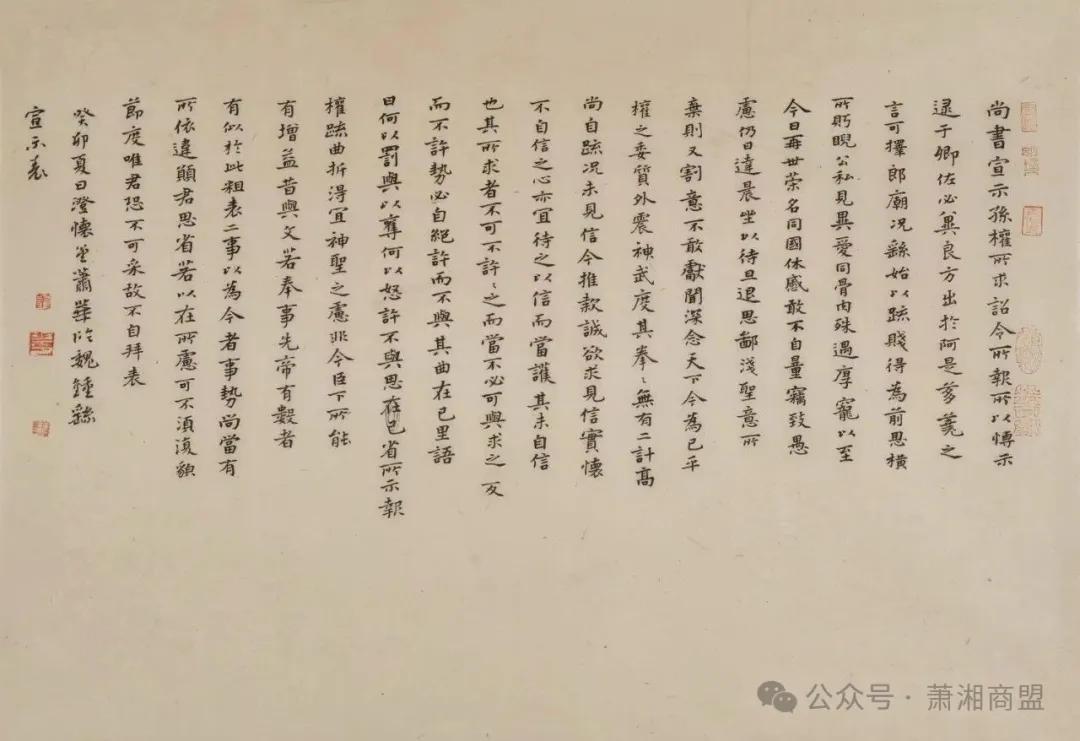 尚書宣示孫權所求詔令所報所以愽示
逮于卿佐必兾良方出於阿是芻蕘之
言可擇郎廟况繇始以疏賤得為前恩橫
所䀢睨公私見異愛同骨肉殊遇厚寵以至
今日再世榮名同國休慼敢不自量竊致愚
慮仍日達晨坐以待旦退思鄙淺聖意所
棄則又割意不敢獻聞深念天下今為已平
權之委質外震神武度其拳〻無有二計高
尚自疏况未見信今推款誠欲求見信實懷
不自信之心亦宜待之以信而當護其未自信
也其所求者不可不許〻之而當不必可與求之反
而不許勢必自絕許而不與其曲在己里語
曰何以罰與以奪何以怒許不與思在己省所示報
權疏曲折得宜神聖之慮非今臣下所能
有增益昔與文若奉事先帝有數者
有似於此粗表二事以為今者事勢尚當有
所依違願君思省若以在所慮可不須復貌
節度唯君恐不可采故不自拜表
癸卯夏日澄懷堂蕭華臨魏鍾繇
宣示表
公众号 · 萧湘商盟